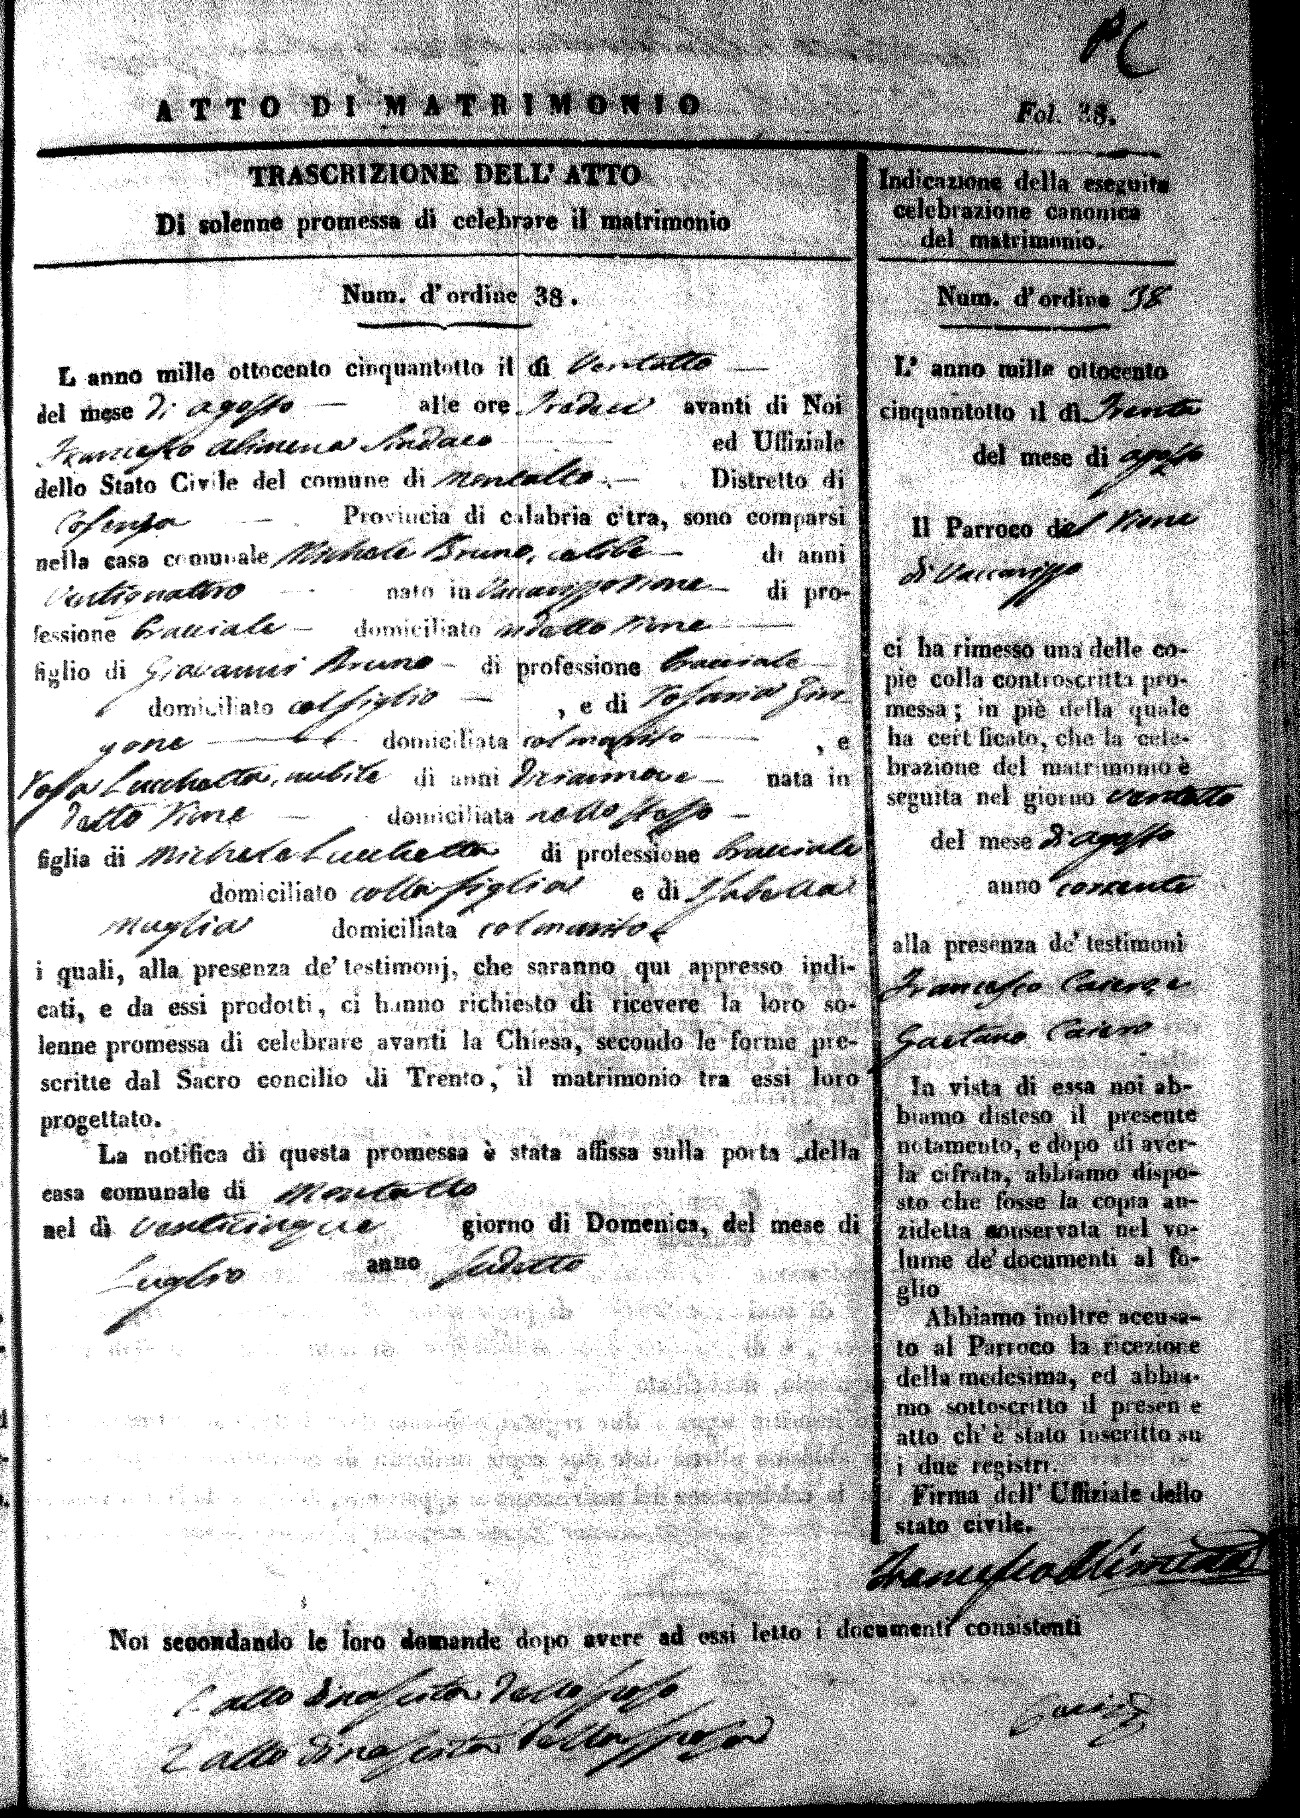 ATTO DI MATRIMONIO
Fol. 38.
TRASCRIZIONE DELL' ATTO
Di solenne promessa di celebrare il matrimonio
Num. d'ordine 38.
L anno mille ottocento cinquantotto il dì Ventotto
del mese di agosto alle ore Tredeci avanti di Noi
Francesco Alimena Sindaco ed Uffiziale
dello Stato Civile del comune di Montalto Distretto di
Cosenza Provincia di calabria citra, sono comparsi
nella casa comunale Michele Bruno, celibe di anni
Ventiquattro nato in Vaccarizzo Rione di pro-
fessione bracciale domiciliato in detto Rione
figlio di Giovanni Bruno di professione bracciale
domiciliato col figlio , e di Rosaria Zin
gone domiciliata col marito , e
Rosa Lucchetta, nubile di anni Diciannove nata in
detto Rione domiciliata nello stesso
figlia di Michele Lucchetta di professione bracciale
domiciliato colla figlia e di Isabella
Muglia domiciliata col marito
i quali, alla presenza de' testimonj, che saranno qui appresso indi-
cati, e da essi prodotti, ci hanno richiesto di ricevere la loro so-
lenne promessa di celebrare avanti la Chiesa, secondo le forme pre-
scritte dal Sacro concilio di Trento, il matrimonio tra essi loro
progettato.
La notifica di questa promessa è stata affissa sulla porta della
casa comunale di Montalto
nel dì venticinque giorno di Domenica, del mese di
Luglio anno sudetto
Indicazione della eseguita
celebrazione canonica
del matrimonio.
Num. d'ordine 38
L' anno mille ottocento
cinquantotto il dì Trenta
del mese di agosto
Il Parroco del Rione
di Vaccarizzo
ci ha rimesso una delle co-
pie colla controscritta pro-
messa; in piè della quale
ha certificato, che la cele-
brazione del matrimonio è
seguita nel giorno ventotto
del mese di agosto
anno corrente
alla presenza de' testimoni
Francesco Caserza e
Gaetano Cairo
In vista di essa noi ab-
biamo disteso il presente
notamento, e dopo di aver-
la cifrata, abbiamo dispo-
sto che fosse la copia an-
zidetta conservata nel vo-
lume de' documenti al fo-
glio
Abbiamo inoltre accusa-
to al Parroco la ricezione
della medesima, ed abbia-
mo sottoscritto il presen e
atto ch' è stato inscritto su
i due registri.
Firma dell' Uffiziale dello
stato civile.
Francesco Alimena
Noi secondando le loro domande dopo avere ad essi letto i documenti consistenti
1 atto di nascita dello sposo
2 atto di nascita della sposa